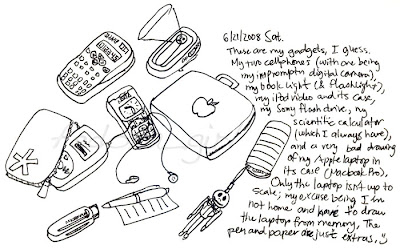 6/21/2008 Sat.
These are my gadgets, I guess.
My two cellphones (with one being
my impromptu digital camera),
my book light (& flashlight),
my ipod video and its case,
my Sony flash drive, my
scientific calculator
(which I always have),
and a very bad drawing
of my Apple laptop in
its case (Macbook Pro).
Only the laptop isn't up to
scale; my excuse being I'm
not home and have to draw
the laptop from memory. The
pen and paper are just extras. ;)